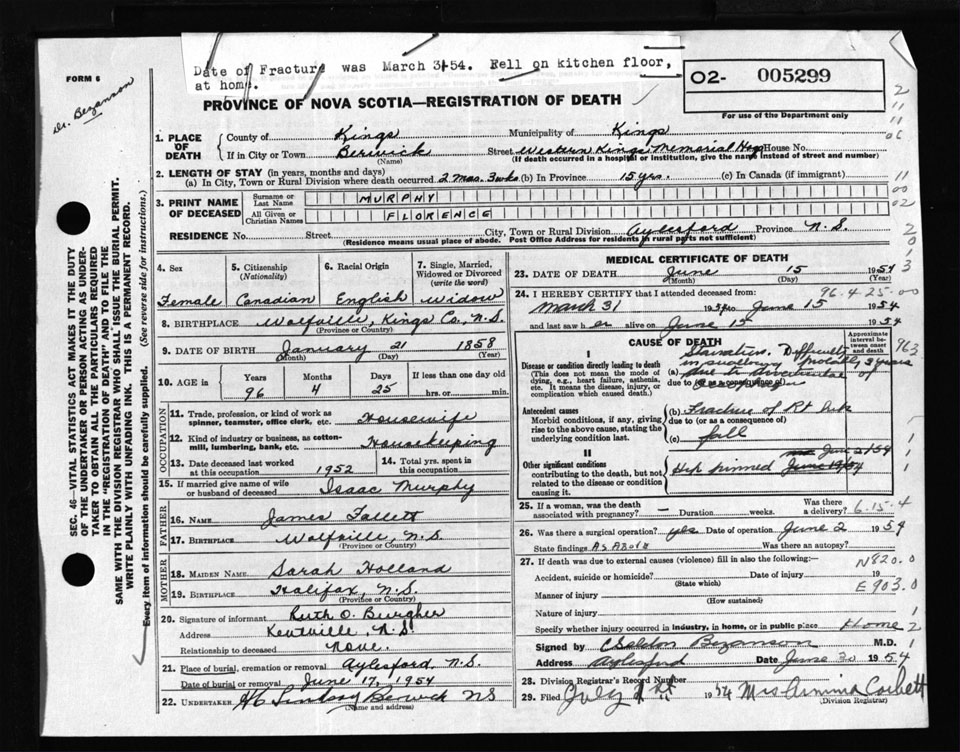 Date of Fracture was March 31-54. Fell on kitchen floor,
at home.
FORM 6
Dr. Bezanson
O2- 005299
For use of the Department only
PROVINCE OF NOVA SCOTIA—REGISTRATION OF DEATH
1. PLACE OF DEATH
County of Kings Municipality of Kings
If in City or Town Berwick Street Western Kings Memorial Hosp House No.
(Name) (If death occurred in a hospital or institution, give the name instead of street and number)
2. LENGTH OF STAY (in years, months and days)
(a) In City, Town or Rural Division where death occurred 2 mos. 3 wks (b) In Province 15 yrs. (c) In Canada (if immigrant)
3. PRINT NAME OF DECEASED
Surname or Last Name MURPHY
All Given or Christian Names FLORENCE
RESIDENCE No. Street City, Town or Rural Division Aylesford Province N.S.
(Residence means usual place of abode. Post Office Address for residents in rural parts not sufficient)
4. Sex Female
5. Citizenship (Nationality) Canadian
6. Racial Origin English
7. Single, Married, Widowed or Divorced (write the word) Widow
8. BIRTHPLACE Wolfville, Kings Co., N.S.
(Province or Country)
9. DATE OF BIRTH January 21 1858
(Month) (Day) (Year)
10. AGE in Years 96 Months 4 Days 25 If less than one day old hrs. or min.
OCCUPATION
11. Trade, profession, or kind of work as spinner, teamster, office clerk, etc. Housewife
12. Kind of industry or business, as cotton-mill, lumbering, bank, etc. Housekeeping
13. Date deceased last worked at this occupation 1952
14. Total yrs. spent in this occupation
15. If married give name of wife or husband of deceased Isaac Murphy
FATHER
16. NAME James Fallett
17. BIRTHPLACE Wolfville, N.S.
(Province or Country)
MOTHER
18. MAIDEN NAME Sarah Holland
19. BIRTHPLACE Halifax, N.S.
(Province or Country)
20. Signature of informant Ruth O. Burgher
Address Kentville, N.S.
Relationship to deceased None.
21. Place of burial, cremation or removal Aylesford, N.S.
Date of burial or removal June 17, 1954
22. UNDERTAKER Berwick NS
(Name and address)
MEDICAL CERTIFICATE OF DEATH
23. DATE OF DEATH June 15 1954
(Month) (Day) (Year)
96.4-25-00
24. I HEREBY CERTIFY that I attended deceased from:
March 31 1954 to June 15 1954
and last saw her alive on June 15 1954
CAUSE OF DEATH
Approximate interval between onset and death
I
Disease or condition directly leading to death
(This does not mean the mode of dying, e.g., heart failure, asthenia, etc. It means the disease, injury, or complication which caused death.)
(a) Starvation. Difficulty in swallowing probably due to diverticulae of
due to (or as a consequence of)
2 years
Antecedent causes
Morbid conditions, if any, giving rise to the above cause, stating the underlying condition last.
(b) Fracture of Rt
due to (or as a consequence of)
(c) fall
II
Other significant conditions
contributing to the death, but not related to the disease or condition causing it.
Hip pinned June 2/54
25. If a woman, was the death associated with pregnancy? - Duration weeks. Was there a delivery? 6-15-4
26. Was there a surgical operation yes Date of operation June 2 1954
State findings As Above Was there an autopsy?
27. If death was due to external causes (violence) fill in also the following: N820.0
Accident, suicide or homicide? Date of injury 19
(State which)
E903.0
Manner of injury
(How sustained)
Nature of injury
Specify whether injury occurred in industry, in home, or in public place Home 2
Signed by C Seldon Bezanson M.D.
Address Aylesford Date June 30 1954
28. Division Registrar's Record Number
29. Filed July 1st 1954 Mrs Armina Corbett
(Division Registrar)
SEC. 46—VITAL STATISTICS ACT MAKES IT THE DUTY
OF THE UNDERTAKER OR PERSON ACTING AS UNDER-
TAKER TO OBTAIN ALL THE PARTICULARS REQUIRED
IN THE "REGISTRATION OF DEATH" AND TO FILE THE
SAME WITH THE DIVISION REGISTRAR WHO SHALL ISSUE THE BURIAL PERMIT.
WRITE PLAINLY WITH UNFADING INK. THIS IS A PERMANENT RECORD.
Every item of information should be carefully supplied. (See reverse side for instructions.)